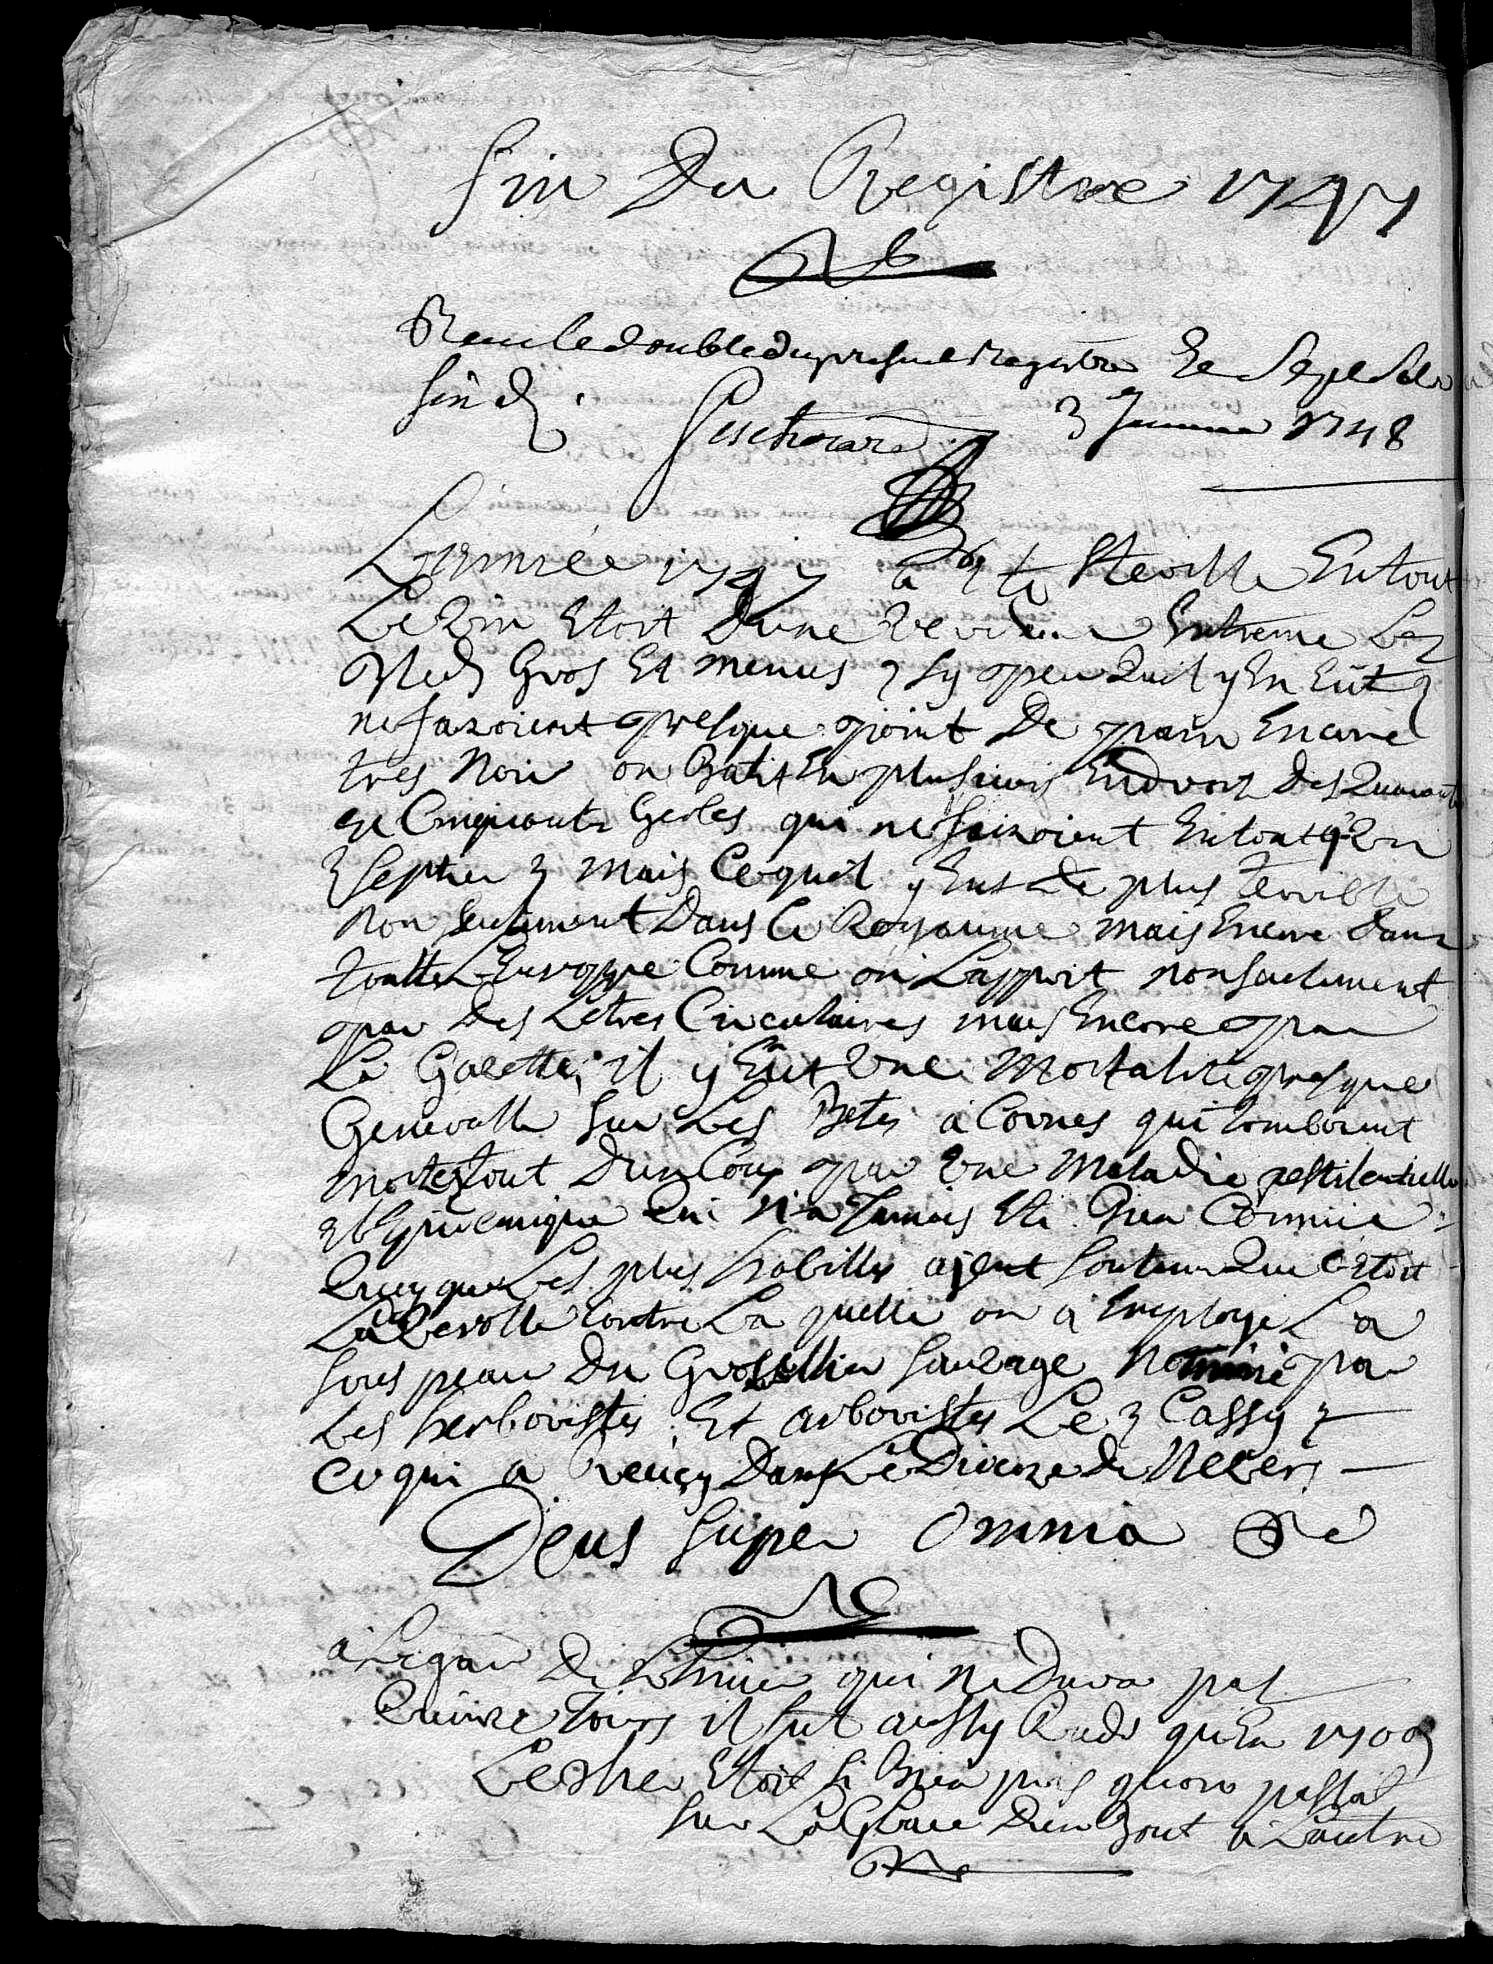 fin Du Registre 1747
Receu le double du present Registre Ce Sept Sols
six d.
3 Janvier 1748
L'année 1747 a Eté Sterille En tout
Le Vin Etoit D'une verdeur Extreme Les
Bleds Gros Et menus, sy peu quil y En Eût
ne faizoient presque point De pain Encore
tres Noir on Batit En plusieurs Endroit des Quarante
Et Cinquante Gerbes qui ne faizoient En tout qu'un
Septier, mais Ce quil y Eut de plus terrible
Non seulement Dans Ce Royaume mais Encore dans
toutte L'Europpe Comme on L'apprit non seulement
par Des Letres Circulaires mais Encore par
La Gazette, il y Eut Une Mortalité presque
Generalle sur Les Betes à Cornes qui tomboient
mortes tout D'un Coup par Une Maladie pestilentielle
Et Epidemique Qui N'a Jamais Eté Bien Connüe
Quoy que Les plus habilles ayent soutenu Que C'Etoit
La Verolle Contre La quelle on a Employé La
sous peau Du Grosellier sauvage Nommé par
Les herboristes Et arboristes Le Cassy
Ce qui a Reüssy Dans Le Dioceze De Nevers
Deus super Omnia &c
à L'egard De L'hiver qui Ne Dura pas
Quinze Jours il fut aussy Rude qu'En 1709
Le Cher Etoit si Bien pris qu'on passoit
sur La Glace D'un Bout à L'autre